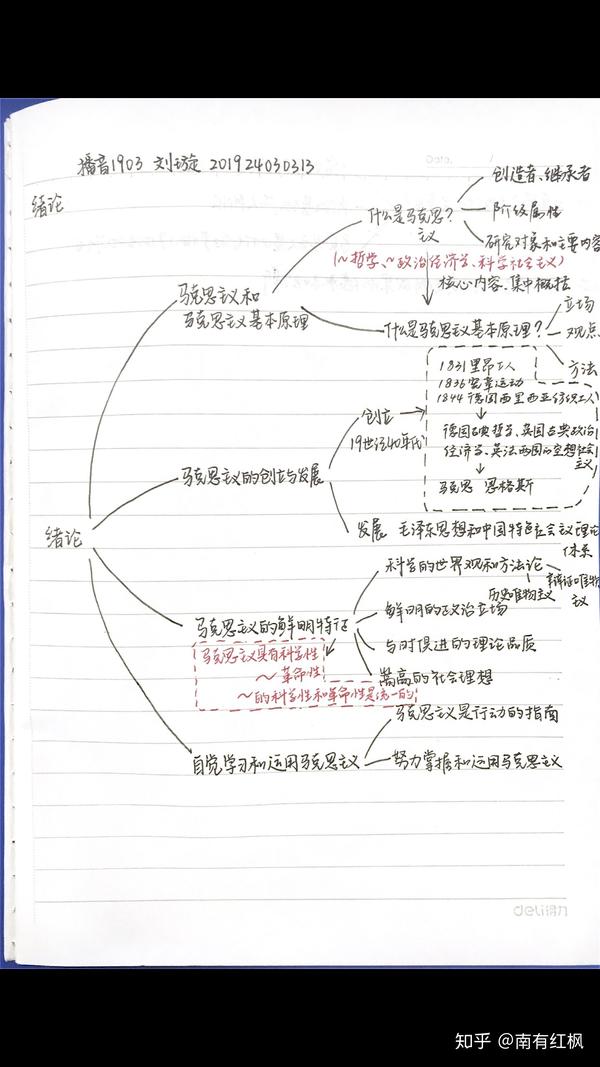 播音1903 刘璇 201924030313
绪论
绪论
马克思主义和
马克思主义基本原理
什么是马克思主义?
创造者、继承者
阶级属性
研究对象和主要内容
(~哲学、~政治经济学、科学社会主义)
核心内容、集中概括
什么是马克思主义基本原理?
立场
观点
方法
马克思主义的创立与发展
创立
19世纪40年代
1831里昂工人
1836宪章运动
1844德国西里西亚纺织工人
德国古典哲学、英国古典政治
经济学、英法两国的空想社会
主义
马克思 恩格斯
发展 毛泽东思想和中国特色社会主义理论
体系
马克思主义的鲜明特征
马克思主义具有科学性
~革命性
~的科学性和革命性是统一的
科学的世界观和方法论
辩证唯物
主义
历史唯物主义
鲜明的政治立场
与时俱进的理论品质
崇高的社会理想
自觉学习和运用马克思主义
马克思主义是行动的指南
努力掌握和运用马克思主义
deli得力
知乎 @南有红枫